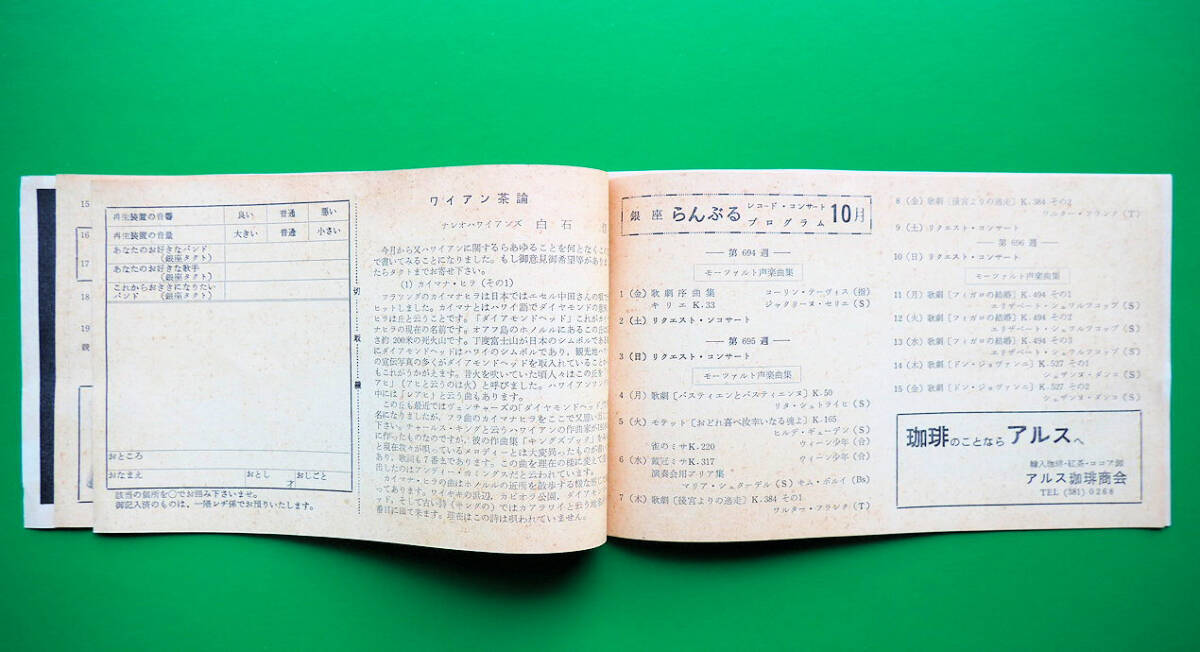 15
16
17
18
19
再生装置の音響 良い 普通 悪い
再生装置の音量 大きい 普通 小さい
あなたのお好きなバンド
(銀座タクト)
あなたのお好きな歌手
(銀座タクト)
これからおききになりたい
バンド (銀座タクト)
おところ
おなまえ おとし 才 おしごと
該当の個所を○でお囲み下さいませ。
御記入済のものは、一階レヂ係でお預りいたします。
切
取
線
ワイアン茶論
ナレオハワイアンズ 白石
今月から又ハワイアンに関するらあゆることを何となくこ
で書いてみることになりました。もし御意見御希望等があり
たらタクトまでお寄せ下さい。
(1) カイマナ・ヒラ (その1)
フラソングのカイマナヒラは日本ではエセル中田さんの唄で
ヒットしました。カイマナとはハワイ語でダイヤモンドの意
ヒラは丘と云うことです。「ダイアモンドヘッド」これがカ
ナヒラの現在の名前です。オアフ島のホノルルにあるこの丘は
さ約200米の死火山です。丁度富士山が日本のシンボルである
にダイアモンドヘッドはハワイのシンボルであり、観光地ハワ
の宣伝写真の多くがダイアモンドヘッドを取入れていることか
もこれがうかがえます。昔火を吹いていた頃人々はこの丘を
アヒ」(アヒと云うのは火)と呼びました。ハワイアンソング
中には「レアヒ」と云う曲もあります。
この丘も最近ではヴェンチャーズの「ダイヤモンドヘッド」
名になりましたが、フラ曲のカイマナヒラをここで又思い出
下さい。チャールス・キングと云うハワイアンの作曲家が
に作ったものなのですが、彼の作曲集「キングスブック」をみ
と現在我々が唄っているメロディーとは大変異ったものが
あり、歌詞も7番まであります。この曲を現在の様に変えて
出したのはアンディー・カミングスだと云われています。
カイマナ・ヒラの曲はホノルルの近所を散歩する様な
ってあります。ワイキキの浜辺、カピオラ公園、ダイアモン
ド。そして古い詩(キングの)ではカアラワイと云う地名
番目に出て来ます。現在はこの詩は唄われていません。
銀座 らんぶる レコード・コンサート プログラム 10月
― 第 694 週 ―
モーツァルト声楽曲集
1 (金) 歌劇序曲集 コーリン・デーヴィス (指)
キリエ K.33 ジャクリーヌ・セリエ (S)
2 (土) リクエスト・ンコサート
― 第 695 週 ―
3 (日) リクエスト・コンサート
モーツァルト声楽曲集
4 (月) 歌劇〔バスティエンとバスティエンヌ〕K.50
リタ・シュトライヒ (S)
5 (火) モテット〔おどれ喜べ汝幸いなる魂よ〕K.165
ヒルデ・ギューデン (S)
雀のミサ K.220 ウィーン少年 (合)
6 (水) 戴冠ミサ K.317 ウィーン少年 (合)
演奏会用アリア集
マリア・シュターデル (S) キム・ボルイ (Bs)
7 (木) 歌劇〔後宮よりの逃走〕K.384 その1
ワルター・フランク (T)
8 (金) 歌劇〔後宮よりの逃走〕K.384 その2
ワルター・フランク (T)
9 (土) リクエスト・コンサート
― 第 696 週 ―
10 (日) リクエスト・コンサート
11 (月) 歌劇〔フィガロの結婚〕K.494 その1
エリザベート・シュワルツコップ (S)
12 (火) 歌劇〔フィガロの結婚〕K.494 その2
エリザベート・シュワルツコップ (S)
13 (水) 歌劇〔フィガロの結婚〕K.494 その3
エリザベート・シュワルツコップ (S)
14 (木) 歌劇〔ドン・ジョヴァンニ〕K.527 その1
シュザンヌ・ダンコ (S)
15 (金) 歌劇〔ドン・ジョヴァンニ〕K.527 その2
シュザンヌ・ダンコ (S)
珈琲のことなら アルスへ
輸入珈琲・紅茶・ココア卸
アルス珈琲商会
TEL (381) 0268